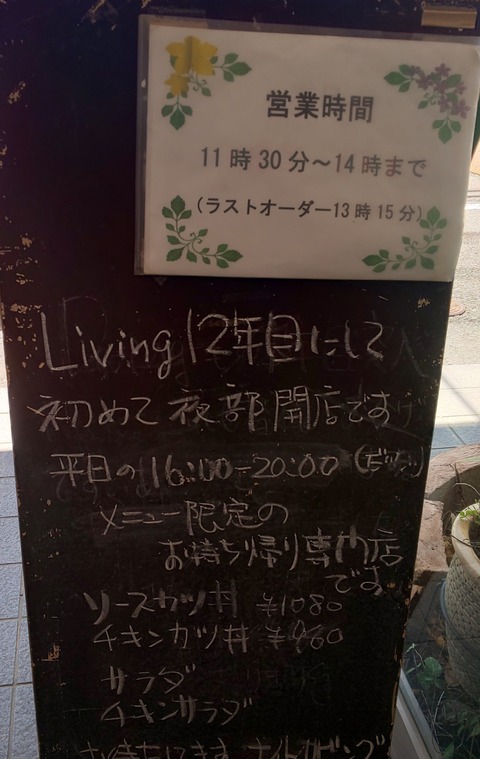 営業時間
11時30分～14時まで
(ラストオーダー13時15分)
Living 12年目にして
初めて夜部開店です
平日の16:00-20:00
メニュー限定の
お持ち帰り専門店
です
ソースカツ丼 ¥1080
チキンカツ丼 ¥960
サラダ
チキンサラダ